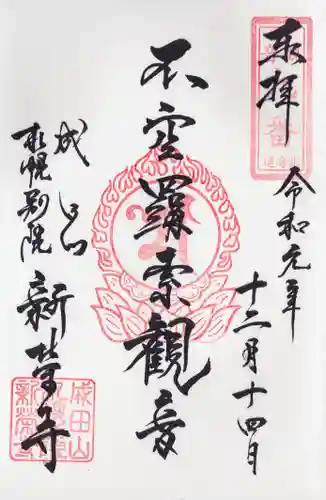 奉拝
令和元年
十二月十四日
不空羂索観音
成田山
札幌別院
新栄寺
成田山